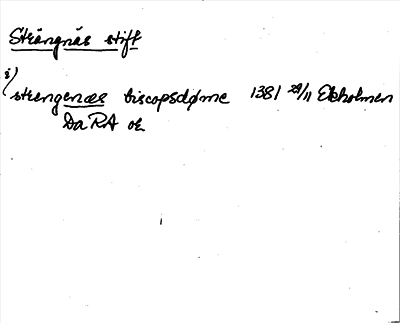 Strängnäs stift
i/
strengenæs biscopsdøme 1381 29/11 Ekholmen
DaRA or.